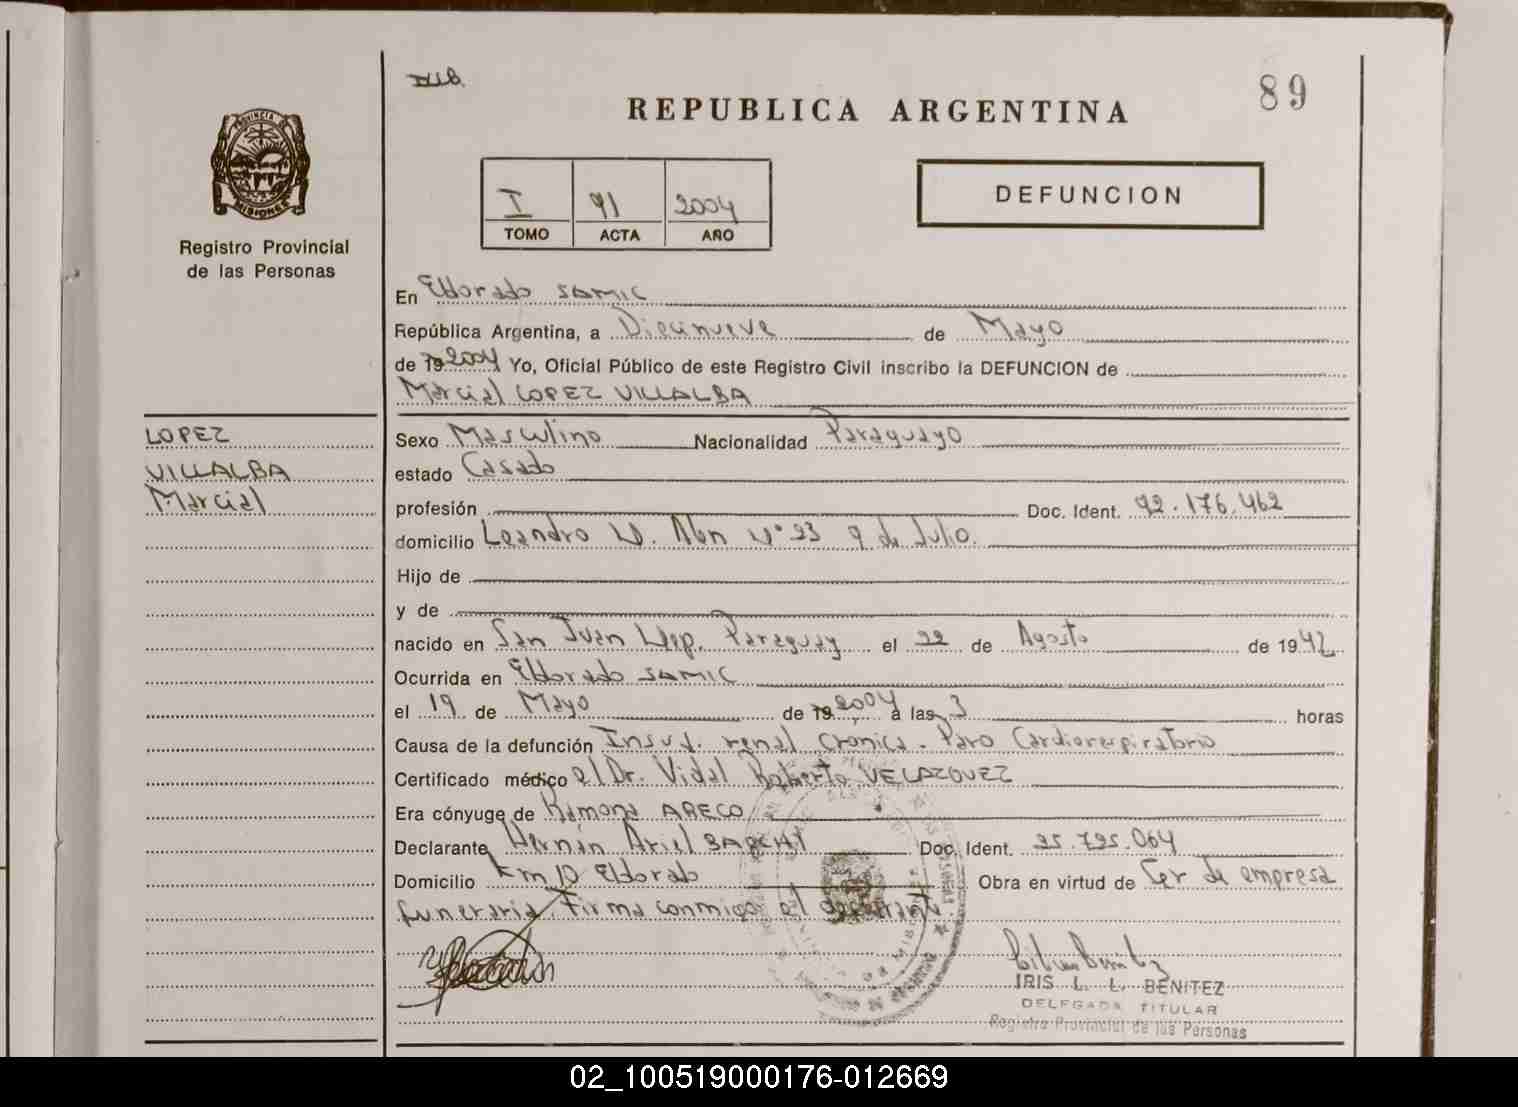 89
REPUBLICA ARGENTINA
PROVINCIA DE
MISIONES
Registro Provincial
de las Personas
I 91 2004
TOMO ACTA AÑO
DEFUNCION
En Eldorado SAMIC
República Argentina, a Diecinueve de Mayo
de 19 2004 Yo, Oficial Público de este Registro Civil inscribo la DEFUNCION de
Marcial LOPEZ VILLALBA
LOPEZ
VILLALBA
Marcial
Sexo Masculino Nacionalidad Paraguayo
estado Casado
profesión Doc. Ident. 92.176.462
domicilio Leandro N. Alen N° 23 9 de Julio.
Hijo de
y de
nacido en San Juan Nep. Paraguay el 22 de Agosto de 1942
Ocurrida en Eldorado SAMIC
el 19 de Mayo de 19 2004 a las 3 horas
Causa de la defunción Insuf. renal cronica - Paro Cardiorespiratorio
Certificado médico el Dr. Vidal Roberto VELAZQUEZ
Era cónyuge de Ramona ARECO
Declarante Hernán Ariel Doc. Ident. 25.795.064
Domicilio Km 10 Eldorado Obra en virtud de Cer de empresa
funeraria. Firma conmigo el declarante.
IRIS L. L. BENITEZ
DELEGADA TITULAR
Registro Provincial de las Personas
02_100519000176-012669